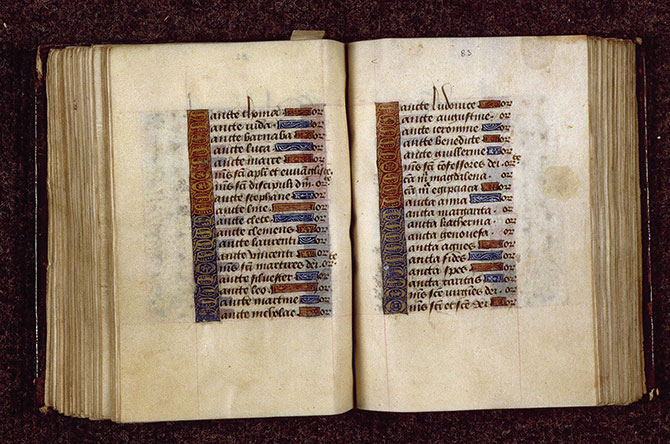 Sancte thoma or
Sancte iuda or
Sancte barnaba or
Sancte luca or
Sancte marce or
Omnis sci apli et euuangliste
Omnis sci discipuli dni or
Sancte stephane or
Sancte line or
Sancte clete or
Sancte clemens or
Sancte laurenti or
Sancte vincenti or
Omnis sci martires dei or
Sancte siluester or
Sancte leo or
Sancte martine or
Sancte nicholae or
83
Sancte ludouice or
Sancte augustine or
Sancte ieronime or
Sancte benedicte or
Sancte guillerme or
Omnis sci cofessores dei or
Sca m magdalena or
Sca m egipciaca or
Sancta anna or
Sancta margarita or
Sancta katherina or
Sancta genouefa or
Sancta agnes or
Sancta fides or
Sancta spes or
Sancta caritas or
Omnis sce uirgies dei or
Omnis sci et sce dei or